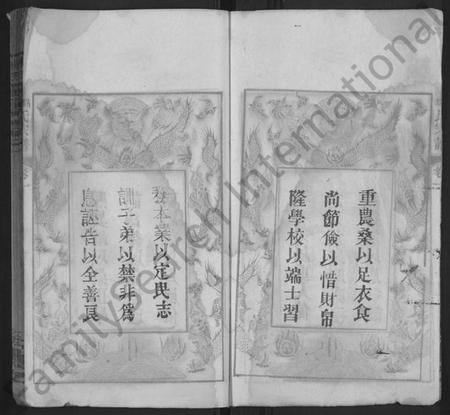 重農桑以足衣食
尚節儉以惜財帛
隆學校以端士習
務本業以定民志
訓子弟以禁非爲
息誣告以全善良
FamilySearch International